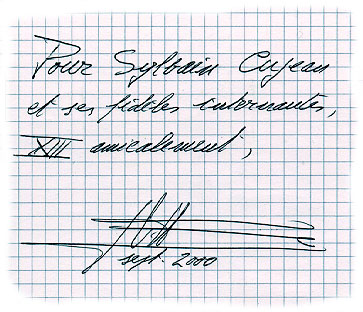 Pour Sylvain Cujean
et ses fidèles internautes,
XIII amicalement,
sept. 2000